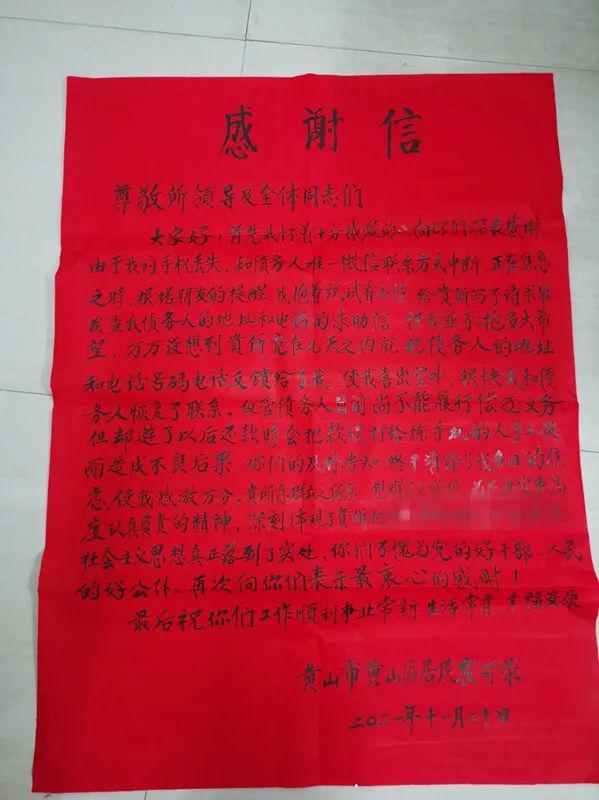 感谢信
尊敬所领导及全体同志们
大家好,首先我怀着十分感激的心向你们深表感谢
由于我的手机丢失,和债务人唯一微信联系方式中断,正在焦急
之时,根据朋友的提醒,我抱着试试看心情,给贵所写了请求帮
我查找债务人的地址和电话的求助信,但我并不抱多大希
望,万万没想到贵所竟在几天之内就把债务人的地址
和电话号码电话反馈给了我,使我喜出望外,很快我和债
务人恢复了联系,仅管债务人目前尚不能履行偿还义务,
但却避了以后还款时会把款误打给拣手机的人手里
而造成不良后果,你们的及时告知终于消除了我多日的焦
急,使我感激万分,贵所急群众所急,想群众所想
度认真负责的精神,深刻体现了贵所把
社会主义思想真正落到了实处,你们不愧为党的好干部,人民
的好公仆。再次向你们表示最衷心的感谢!
最后祝你们工作顺利事业常新,生活常青,幸福安康
黄山市黄山区居民 可荣
二〇二一年十一月二十日